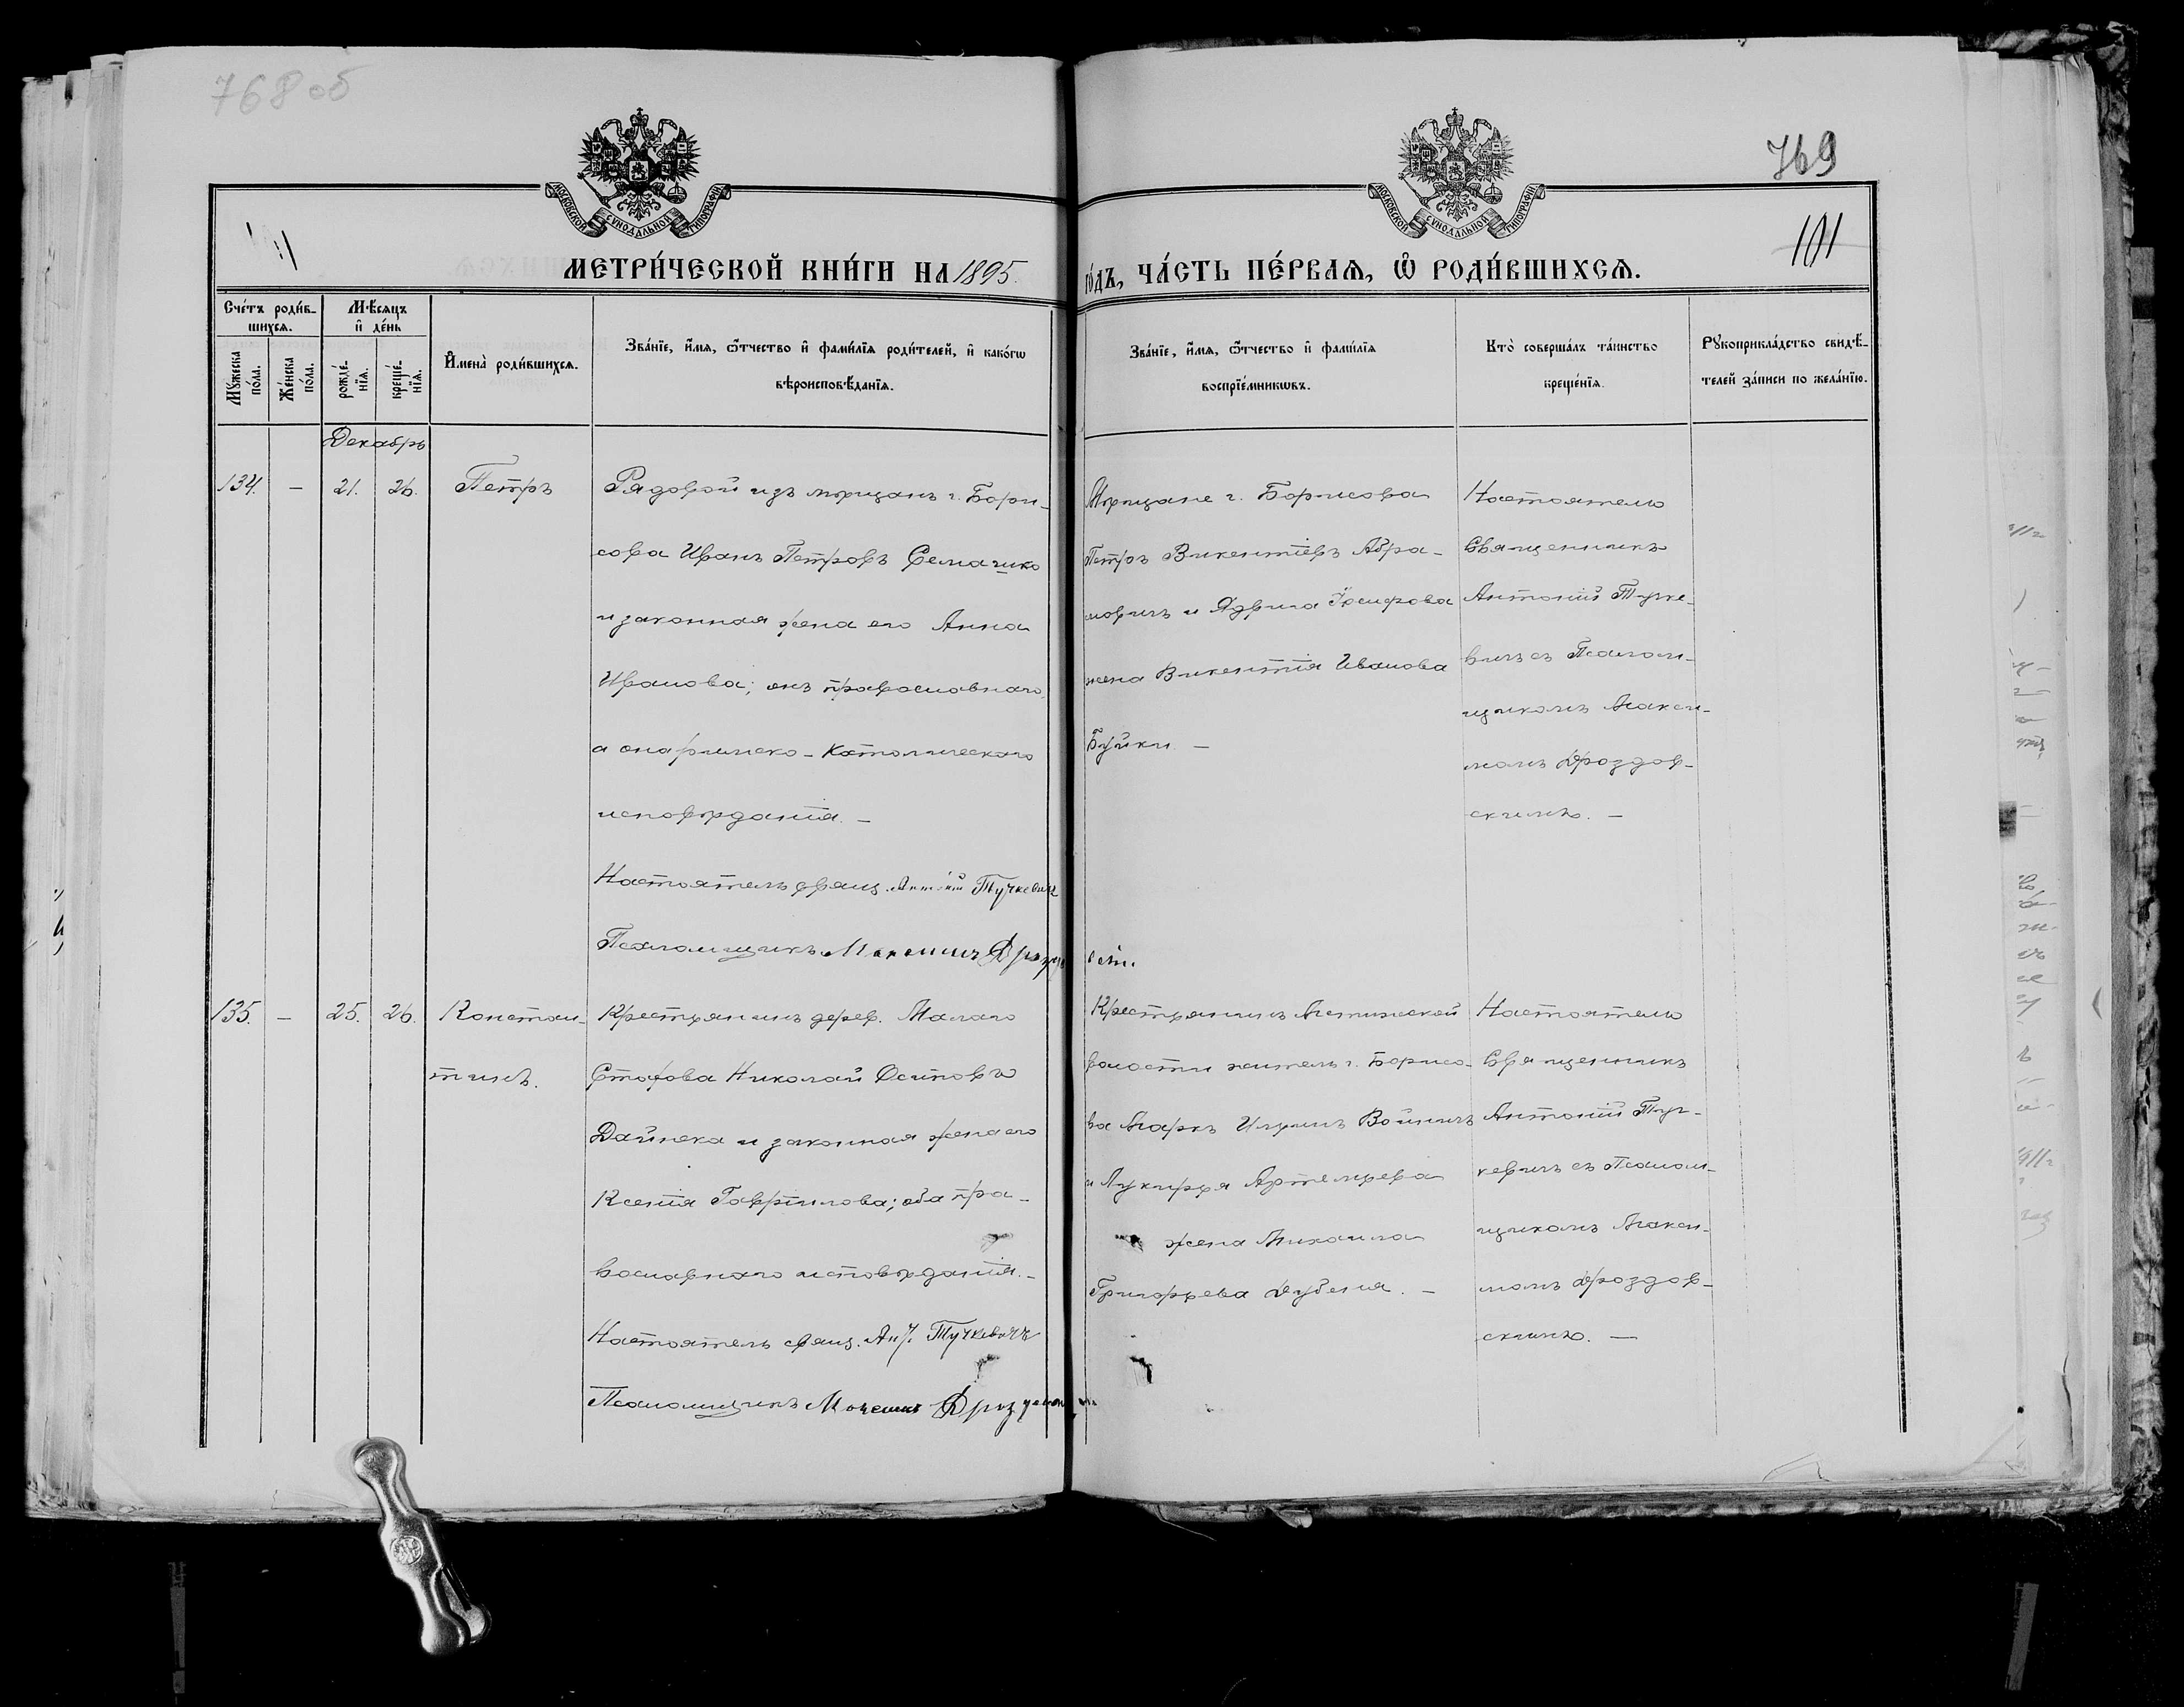 768 об
769
101
МОСКОВСКОЙ СѴНОДАЛЬНОЙ ТИПОГРАФІИ
МОСКОВСКОЙ СѴНОДАЛЬНОЙ ТИПОГРАФІИ
МЕТРИ́ЧЕСКОЙ КНИ́ГИ НА 1895. ГО́ДЪ, ЧА́СТЬ ПЕ́РВАѦ, Ѡ҆ РОДИ́ВШИХСѦ.
Сче́тъ роди́в-
шихсѧ.
Мѣ́сѧцъ
и҆ де́нь
Мꙋ́жеска
по́ла.
Же́нска
по́ла.
рожде́-
нїѧ.
креще́-
нїѧ.
И҆мена̀ роди́вшихсѧ.
Зва́нїе, и҆́мѧ, ѻ҆́тчество и҆ фами́лїѧ роди́телей, и҆ како́гѡ
вѣроисповѣ́данїѧ.
Зва́нїе, и҆́мѧ, ѻ҆́тчество и҆ фами́лїѧ
воспрїе́мникѡвъ.
Кто̀ соверша́лъ та́инство
креще́нїѧ.
Рꙋкоприкла́дство свидѣ́-
телей за́писи по жела́нїю.
Декабрь
134. — 21. 26. Петръ
Рядовой изъ мѣщанъ г. Бори-
сова Иванъ Петровъ Семашко
и законная жена его Анна
Иванова; онъ православнаго,
а она римско-католическаго
исповѣданія. —
Настоятель свящ. Антоній Тучкевичъ
Псаломщикъ Максимъ Дроздовскій
Мѣщане г. Борисова
Петръ Викентіевъ Абра-
мовичъ и Ядвига Іосифова
жена Викентія Иванова
Буйки. —
Настоятель
Священникъ
Антоній Тучке-
вичъ съ Псалом-
щикомъ Макси-
момъ Дроздов-
скимъ. —
135. — 25. 26. Констан-
тинъ.
Крестьянинъ дерев. Малаго
Стахова Николай Осиповъ
Дайнека и законная жена его
Ксенія Гавріилова; оба пра-
вославнаго исповѣданія. —
Настоятель свящ. Ант. Тучкевичъ
Псаломщикъ Максимъ Дроздовскій
Крестьянинъ
волости житель г. Борисо-
ва Маркъ Ильинъ Войничъ
и Лукирья Артемьева
жена Михаила
Григорьева Дубеня. —
Настоятель
Священникъ
Антоній Туч-
кевичъ съ Псалом-
щикомъ Макси-
момъ Дроздов-
скимъ. —